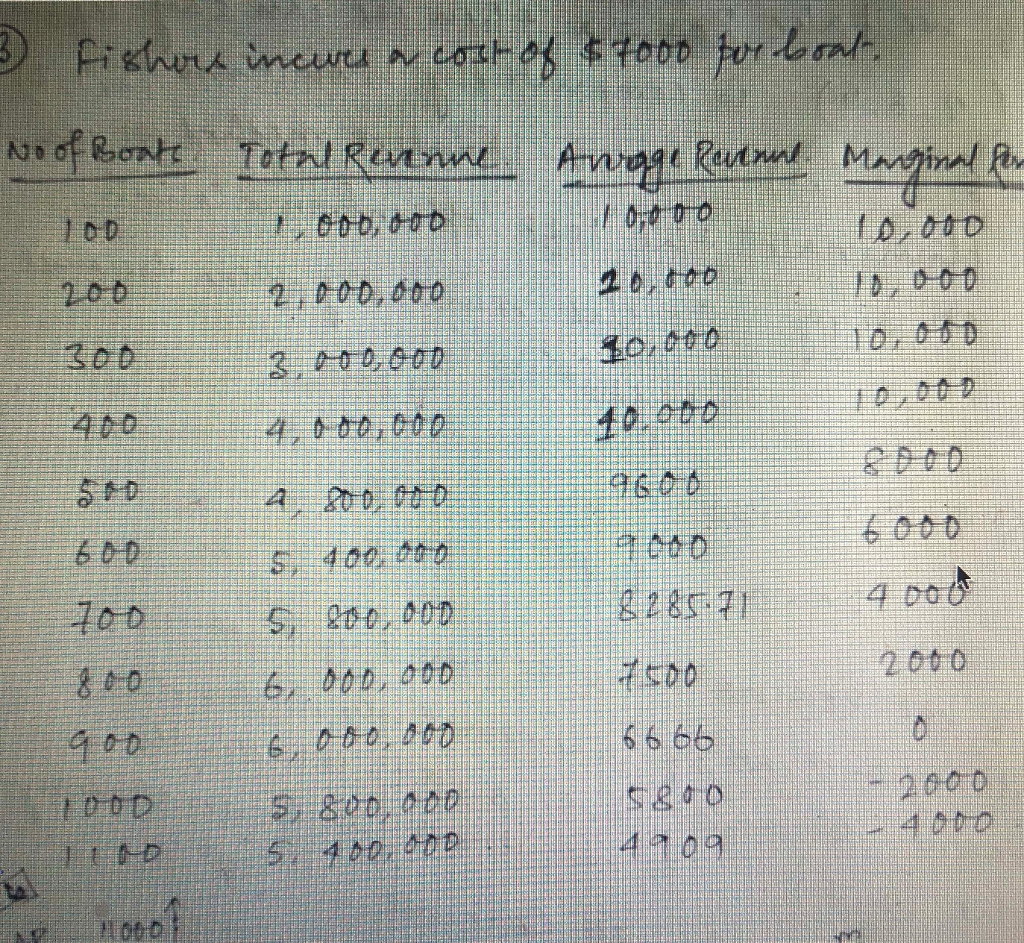 3) Fishers incures a cost of $7000 per boat.
No of Boats Total Revenue Average Revenue Marginal Rev
100 1,000,000 10,000 10,000
200 2,000,000 10,000 10,000
300 3,000,000 10,000 10,000
400 4,000,000 10,000 10,000
500 4,800,000 9600 8000
600 5,400,000 9000 6000
700 5,800,000 8285.71 4000
800 6,000,000 7500 2000
900 6,000,000 6666 0
1000 5,800,000 5800 -2000
1100 5,400,000 4909 -4000
11000